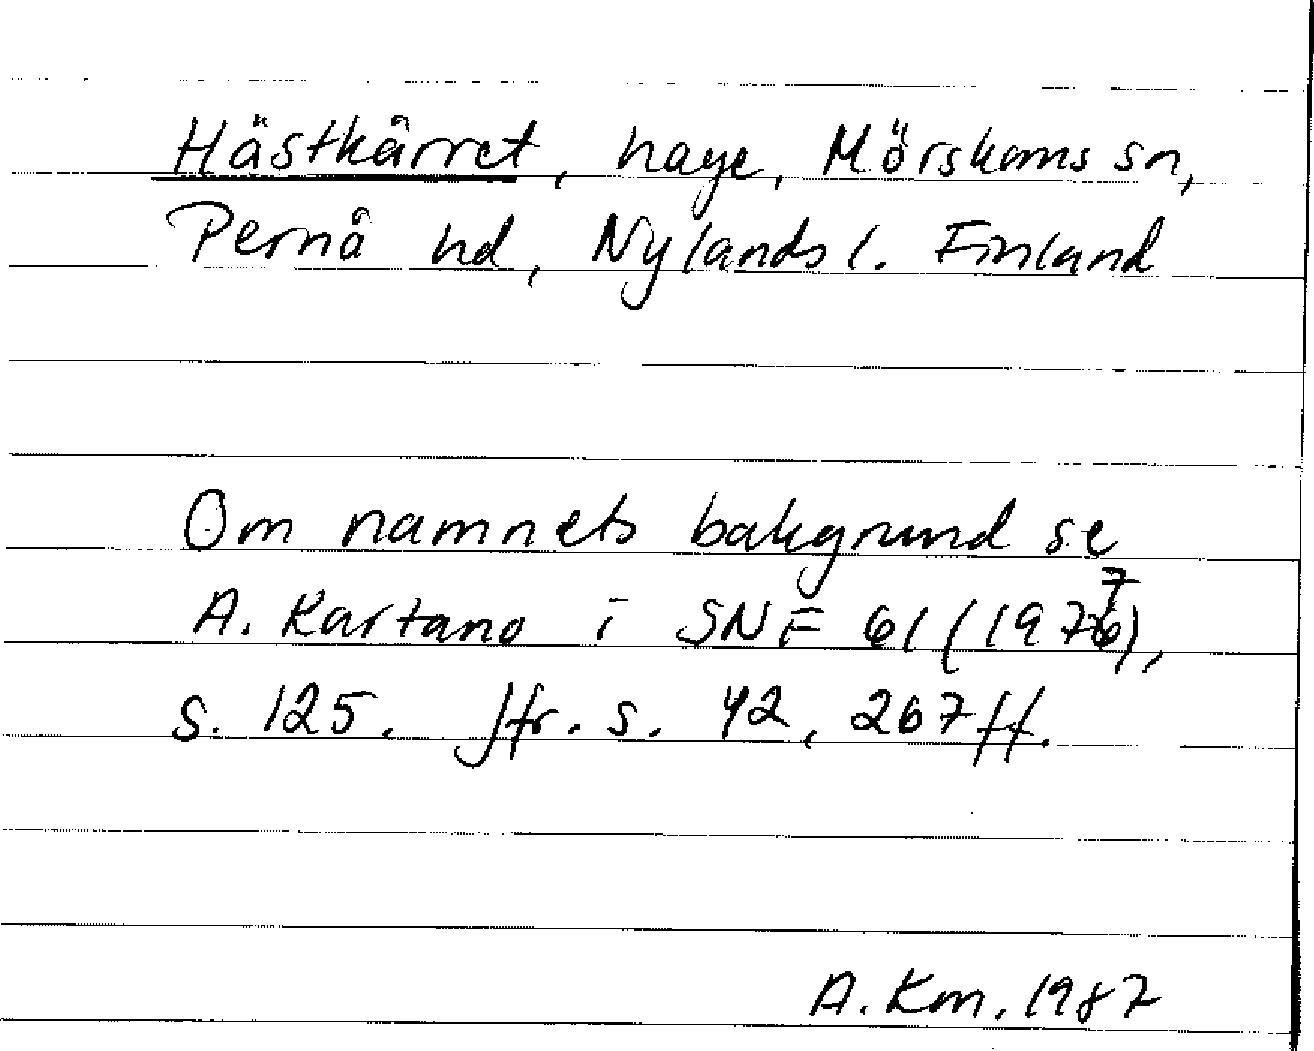 Hästkärret, hage, Mörskoms sn,
Pernå hd, Nylands l. Finland
Om namnets bakgrund se
A. Kartano i SNF 61 (1977),
s. 125. Jfr. s. 42, 267 ff.
A. Km. 1987